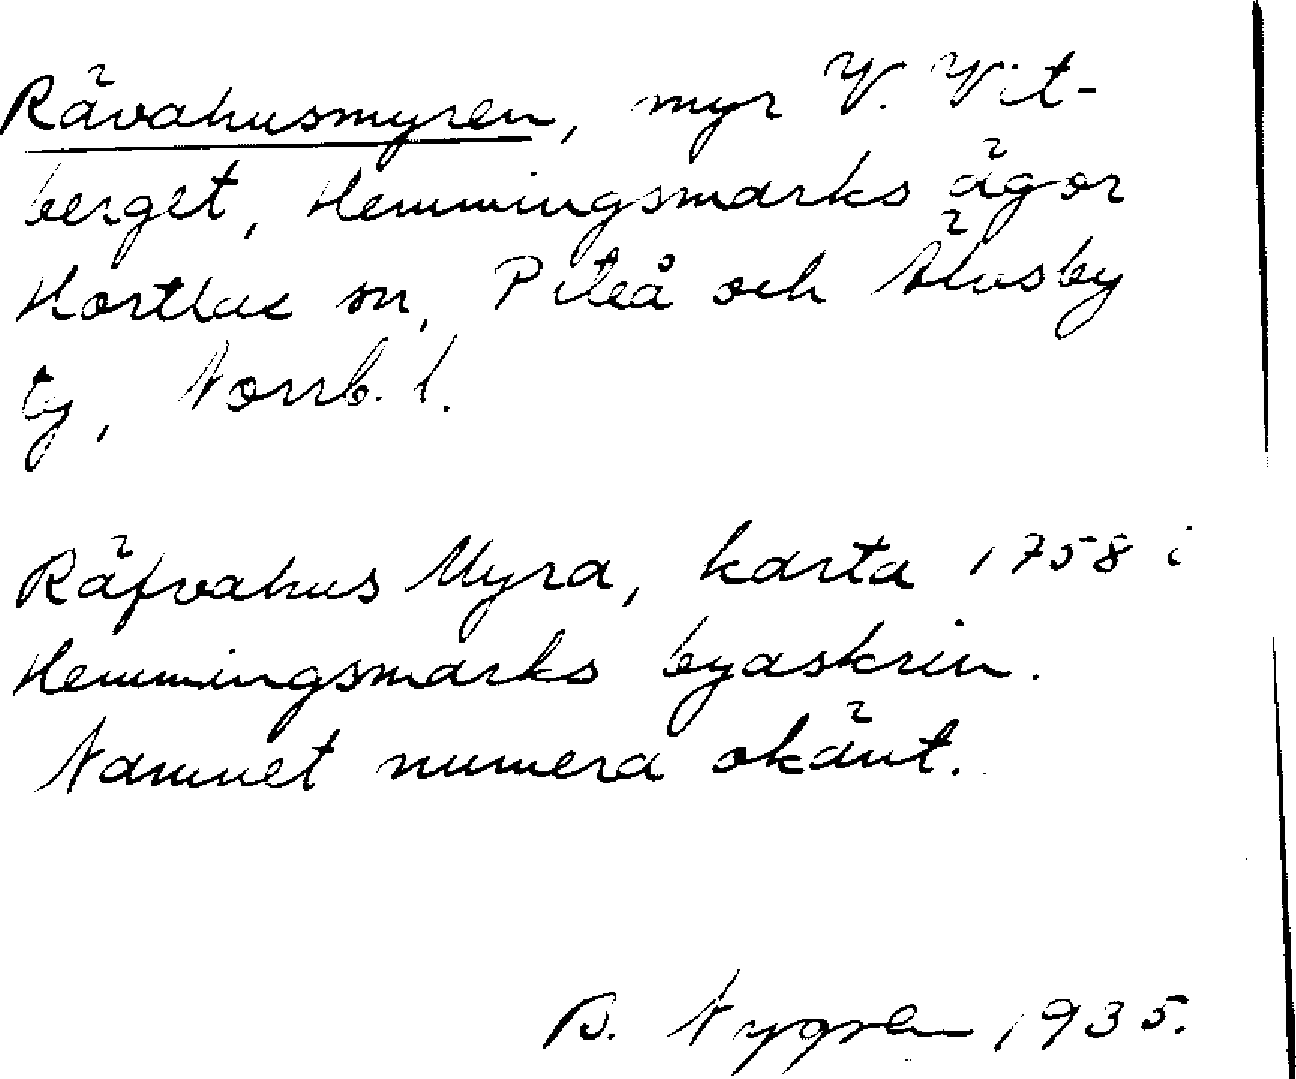 Rävahusmyren, myr V. Vit-
berget, Hemmingsmarks ägor
Hortlax sn, Piteå och Älvsby
tg, Norrb. l.
Räfvahus Myra, karta 1758 i
Hemmingsmarks byaskrin.
Namnet numera okänt.
B. Nygren 1935.